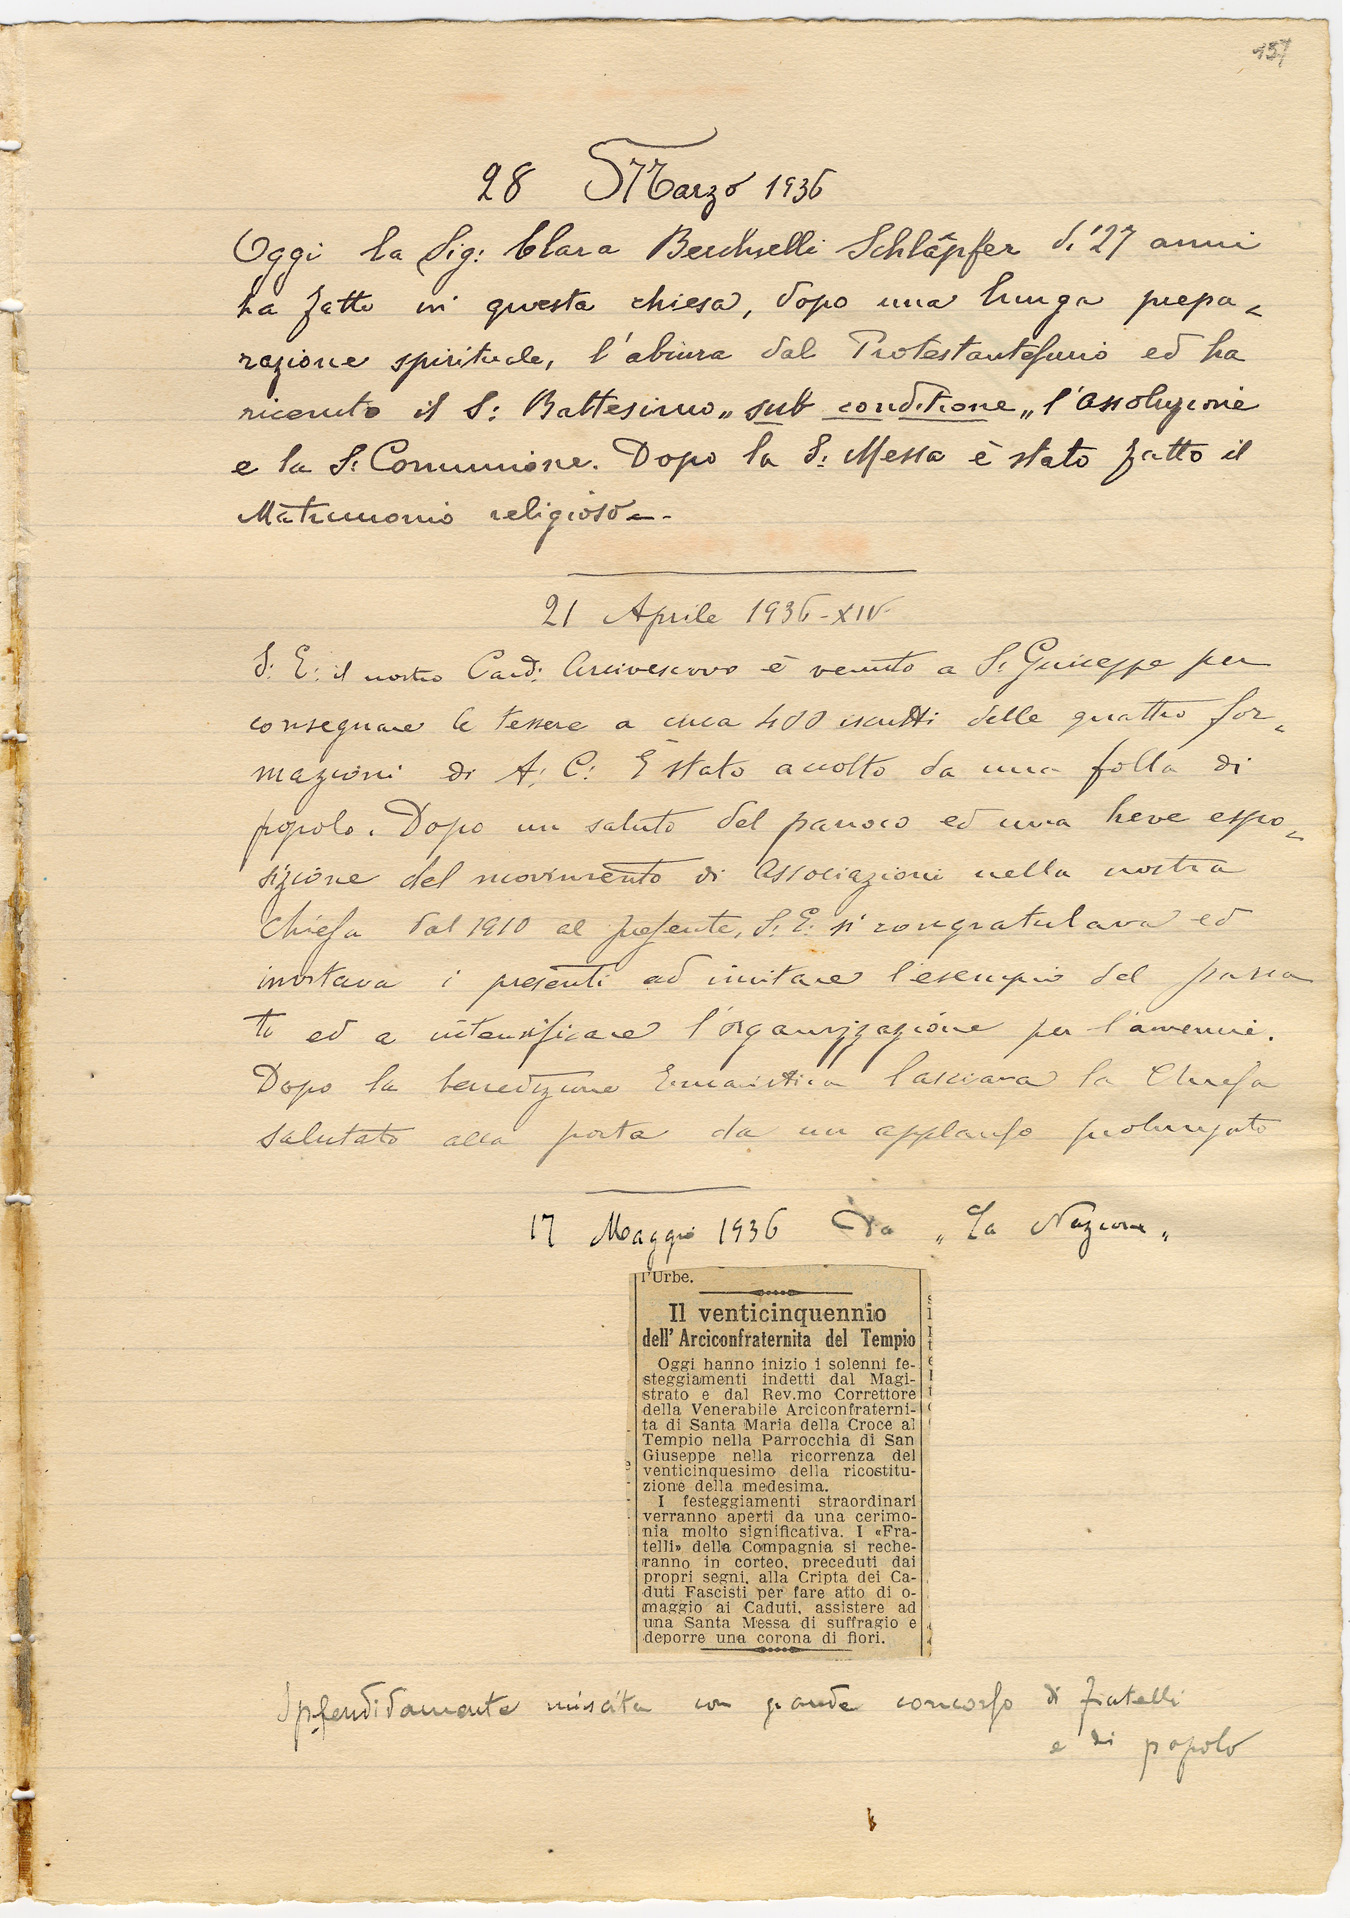 137
28 Marzo 1936
Oggi la Sig: Clara Berchielli Schläpfer di 27 anni
ha fatto in questa chiesa, dopo una lunga prepa-
razione spirituale, l'abiura dal Protestantesimo ed ha
ricevuto il S: Battesimo „ sub conditione „ l'assoluzione
e la S: Comunione. Dopo la S: Messa è stato fatto il
Matrimonio religioso -.
21 Aprile 1936-XIV-
S: E: il nostro Card: Arcivescovo è venuto a S: Giuseppe per
consegnare le tessere a circa 400 iscritti delle quattro for-
mazioni di A: C: È stato accolto da una folla di
popolo. Dopo un saluto del parroco ed una breve espo-
sizione del movimento di Associazioni nella nostra
Chiesa dal 1910 al presente, S: E: si congratulava ed
invitava i presenti ad imitare l'esempio del passa
to ed a intensificare l'organizzazione per l'avvenire.
Dopo la benedizione Eucaristica lasciava la Chiesa
salutato alla porta da un applauso prolungato
17 Maggio 1936 Da „ La Nazione „
l'Urbe.
Il venticinquennio
dell' Arciconfraternita del Tempio
Oggi hanno inizio i solenni fe-
steggiamenti indetti dal Magi-
strato e dal Rev.mo Correttore
della Venerabile Arciconfraterni-
ta di Santa Maria della Croce al
Tempio nella Parrocchia di San
Giuseppe nella ricorrenza del
venticinquesimo della ricostitu-
zione della medesima.
I festeggiamenti straordinari
verranno aperti da una cerimo-
nia molto significativa. I «Fra-
telli» della Compagnia si reche-
ranno in corteo, preceduti dai
propri segni, alla Cripta dei Ca-
duti Fascisti per fare atto di o-
maggio ai Caduti, assistere ad
una Santa Messa di suffragio e
deporre una corona di fiori.
Splendidamente riuscita con grande concorso di fratelli
e di popolo